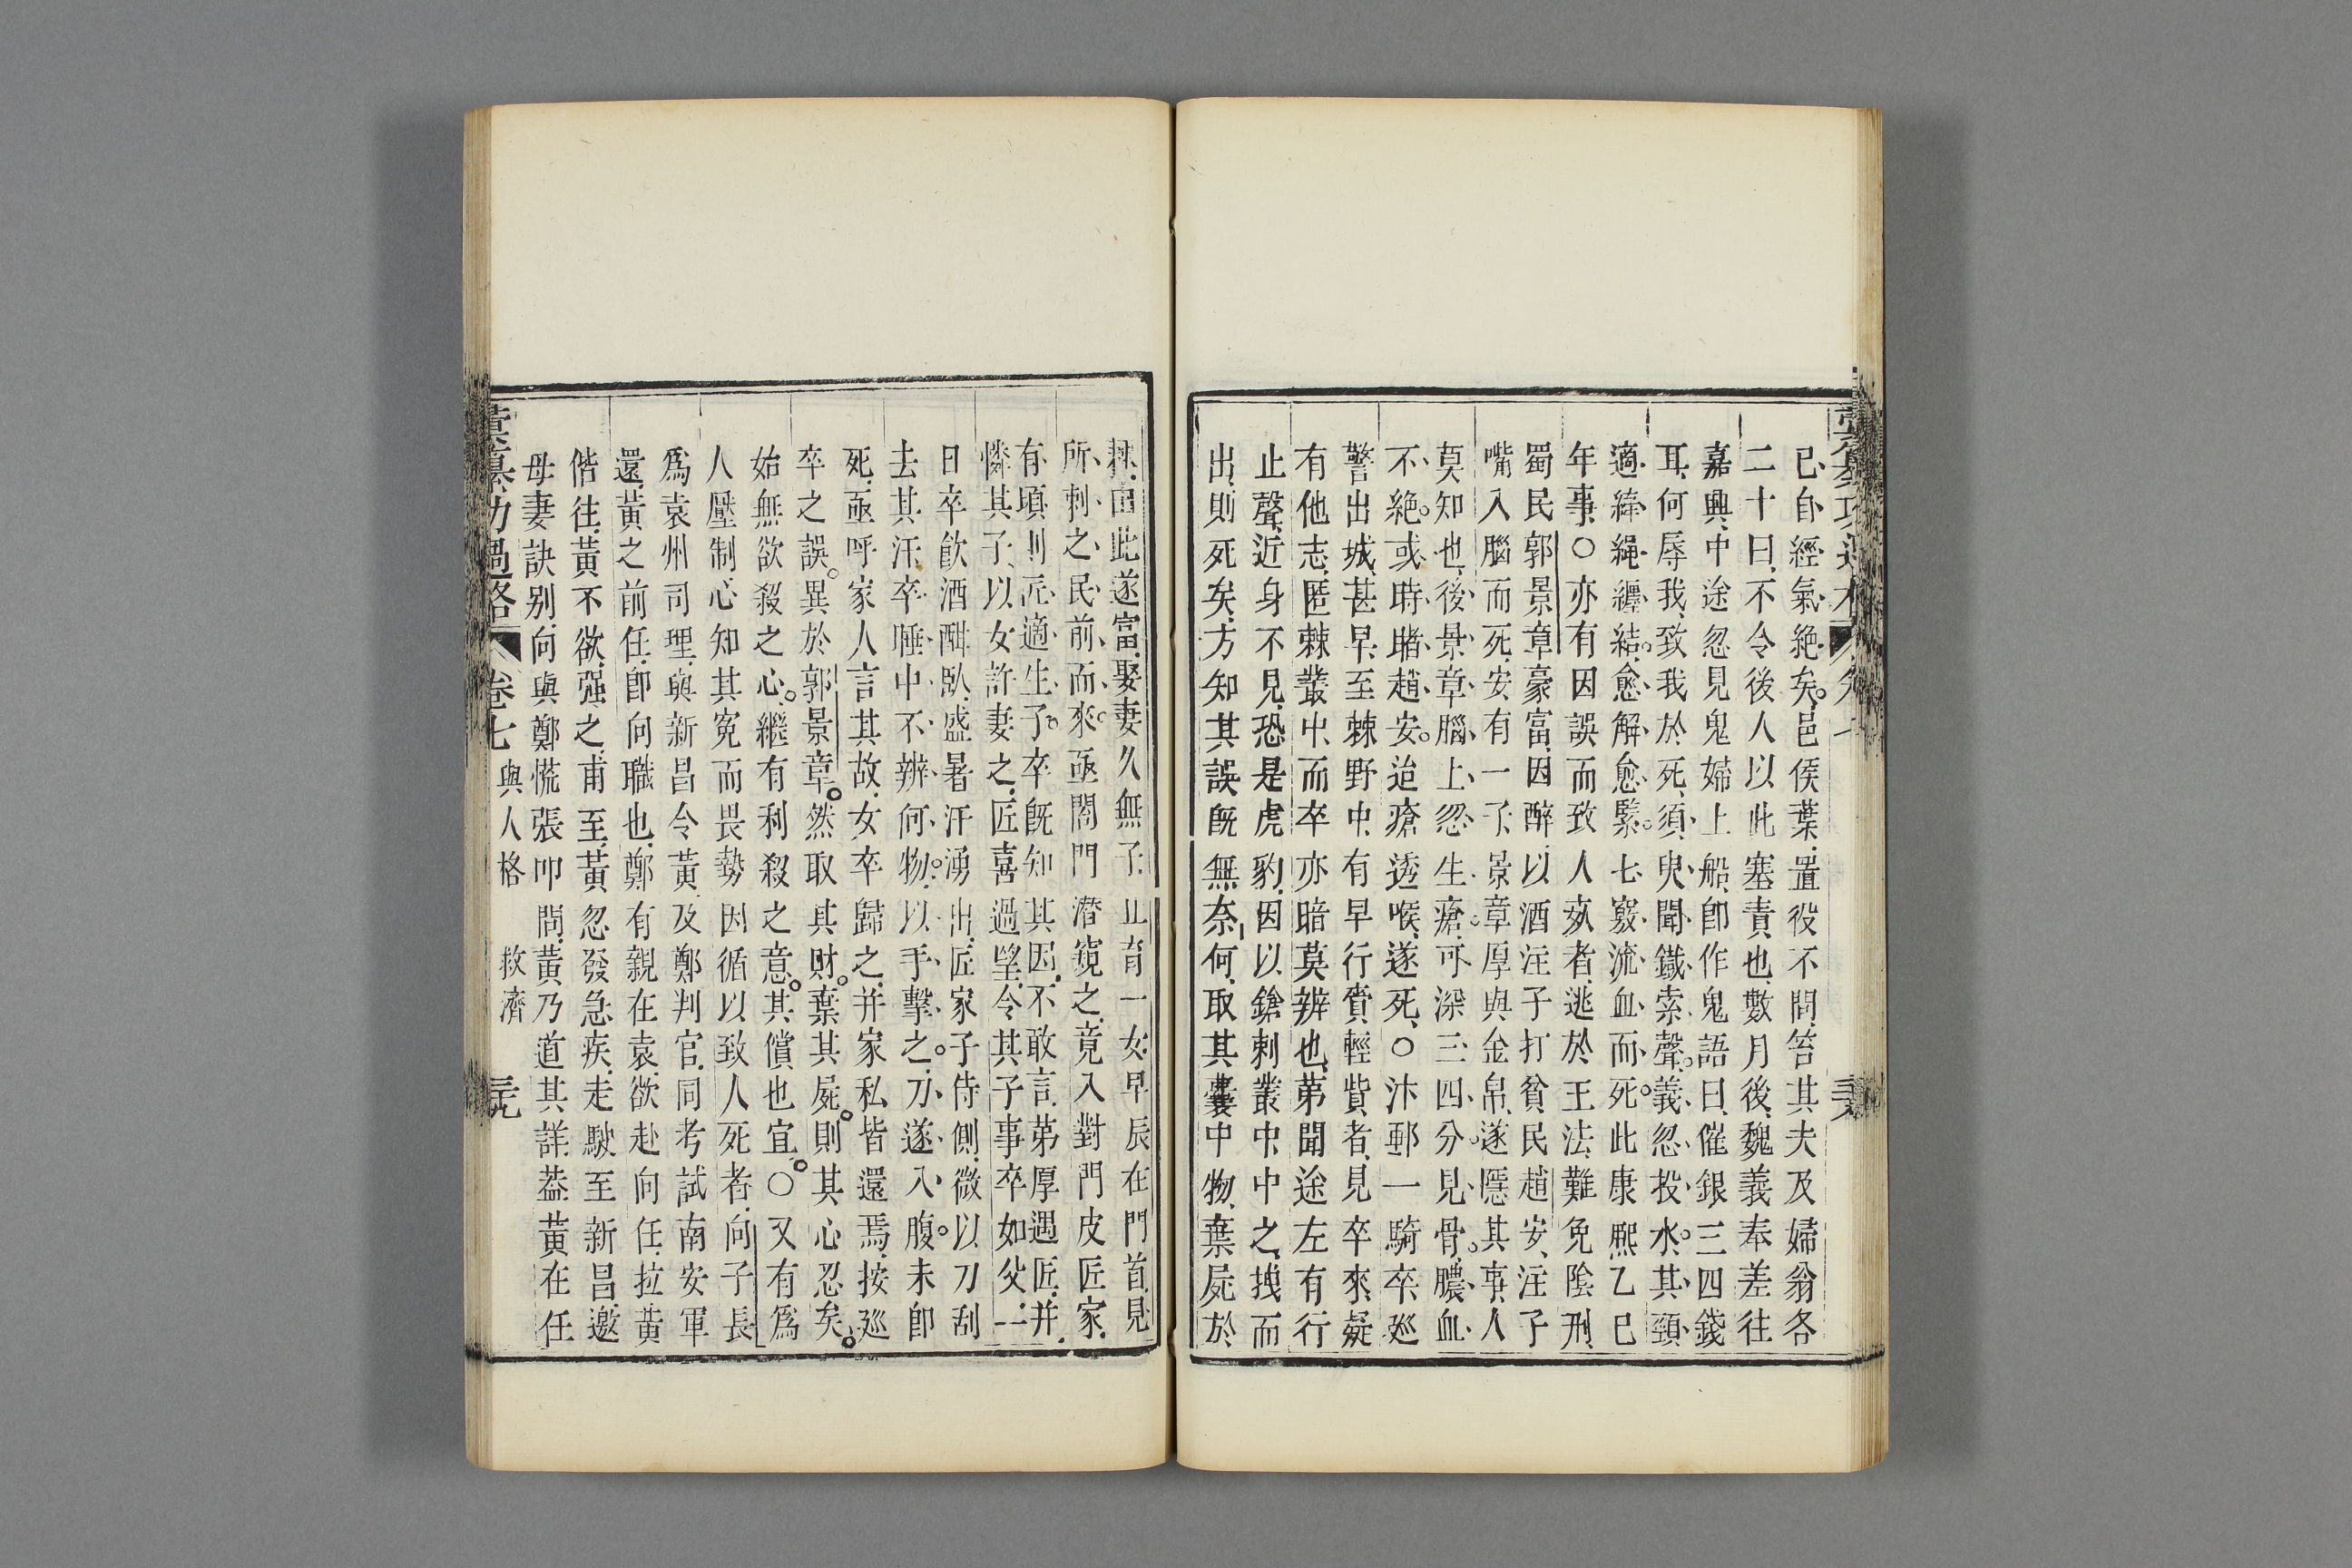 已自經氣絶矣邑侯葉置役不問笞其夫及婦翁各
二十曰不令後人以此塞責也數月後魏義奉差往
嘉興中途忽見鬼婦上船卽作鬼語曰催銀三四錢
耳何辱我致我於死須臾聞鐵索聲義忽投水其頸
適縴繩纏結愈解愈緊七竅流血而死此康熙乙巳
年事○亦有因誤而致人死者逃於王法難免陰刑
蜀民郭景章豪富因醉以酒注子打貧民趙安注子
嘴入腦而死安有一子景章厚與金帛遂隱其事人
莫知也後景章腦上忽生瘡可深三四分見骨膿血
不絶或時睹趙安迨瘡透喉遂死○汴郵一騎卒廵
警出城甚早至棘野中有早行賫輕貲者見卒來疑
有他志匿棘叢中而卒亦暗莫辨也第聞途左有行
止聲近身不見恐是虎豹因以鎗刺叢中中之拽而
出則死矣方知其誤旣無奈何取其囊中物棄屍於
棘由此遂富娶妻久無子止育一女早辰在門首見
所刺之民前而來亟閤門潛窺之竟入對門皮匠家
有頃則匠適生子卒旣知其因不敢言第厚遇匠并
憐其子以女許妻之匠喜過望令其子事卒如父一
日卒飲酒酣臥盛暑汗湧出匠家子侍側微以刀刮
去其汗卒睡中不辨何物以手擊之刀遂入腹未卽
死亟呼家人言其故女卒歸之并家私皆還焉按廵
卒之誤異於郭景章然取其財棄其屍則其心忍矣
始無欲殺之心繼有利殺之意其償也宜○又有爲
人壓制心知其寃而畏勢因循以致人死者向子長
爲袁州司理與新昌令黃及鄭判官同考試南安軍
還黃之前任卽向職也鄭有親在袁欲赴向任拉黃
偕往黃不欲强之甫至黃忽發急疾走駛至新昌邀
母妻訣别向與鄭慌張叩問黃乃道其詳葢黃在任
彙纂功過格 卷七 與人格 救濟 三九